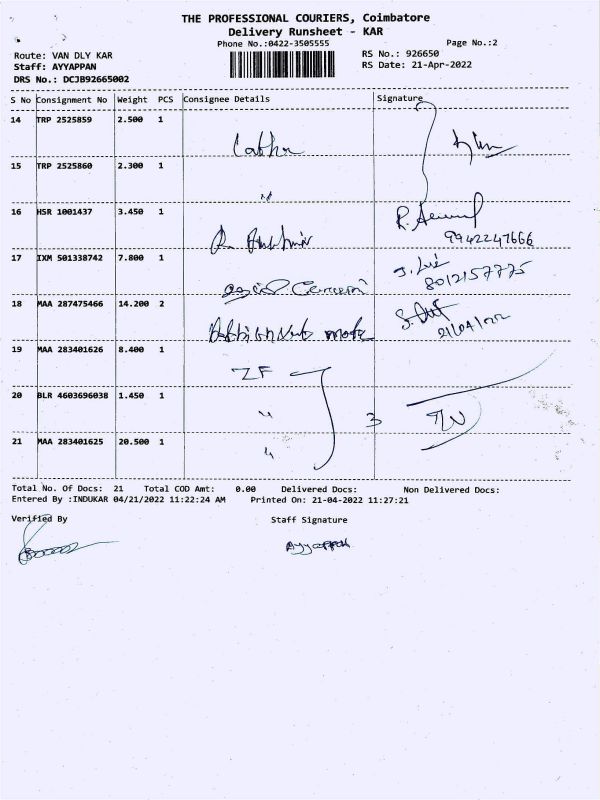 THE PROFESSIONAL COURIERS, Coimbatore
Delivery Runsheet - KAR
Phone No.:0422-3505555
Page No.:2
Route: VAN DLY KAR
RS No.: 926650
Staff: AYYAPPAN
RS Date: 21-Apr-2022
DRS No.: DCJB92665002
S No Consignment No Weight PCS Consignee Details Signature
14 TRP 2525859 2.500 1
Latha
15 TRP 2525860 2.300 1
"
16 HSR 1001437 3.450 1
R.
9942247666
17 IXM 501338742 7.800 1
8012157775
18 MAA 287475466 14.200 2
21/04/22
19 MAA 283401626 8.400 1
ZF
20 BLR 4603696038 1.450 1
" 3
21 MAA 283401625 20.500 1
"
Total No. Of Docs: 21 Total COD Amt: 0.00 Delivered Docs: Non Delivered Docs:
Entered By :INDUKAR 04/21/2022 11:22:24 AM Printed On: 21-04-2022 11:27:21
Verified By Staff Signature
Ayyappan